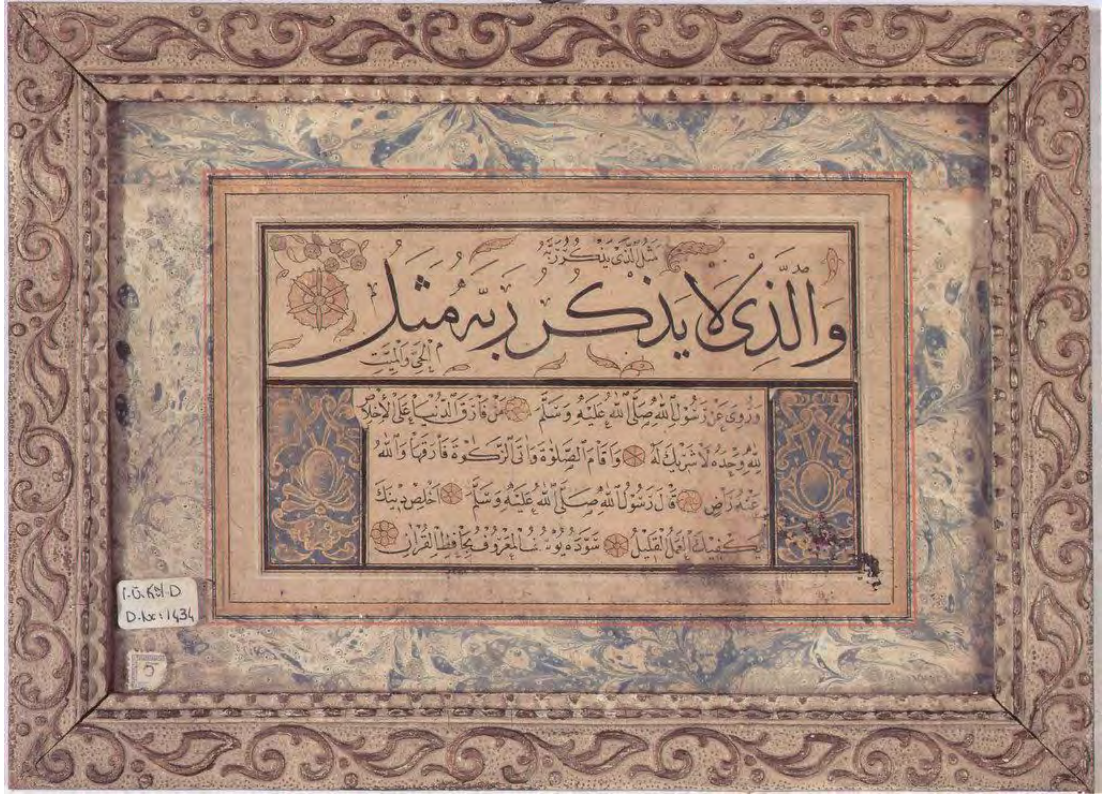 مَثَلُ الَّذِي يَذْكُرُ رَبَّهُ
وَالَّذِي لَا يَذْكُرُ رَبَّهُ مَثَلُ
الْحَيِّ وَالْمَيِّتِ
وَرُوِيَ عَنْ رَسُولِ اللهِ صَلَّى اللهُ عَلَيْهِ وَسَلَّمَ مَنْ فَارَقَ الدُّنْيَا عَلَى الْإِخْلَاصِ
لِلّٰهِ وَحْدَهُ لَا شَرِيكَ لَهُ وَاَقَامَ الصَّلٰوةَ وَاٰتَى الزَّكٰوةَ فَارَقَهَا وَاللهُ
عَنْهُ رَاضٍ قَالَ رَسُولُ اللهِ صَلَّى اللهُ عَلَيْهِ وَسَلَّمَ اَخْلِصْ دِينَكَ
يَكْفِيكَ الْعَمَلُ الْقَلِيلُ سَوَّدَهُ يُوسُفُ الْمَعْرُوفُ بِحَافِظِ الْقُرْاٰنِ
D.No: 1434
5